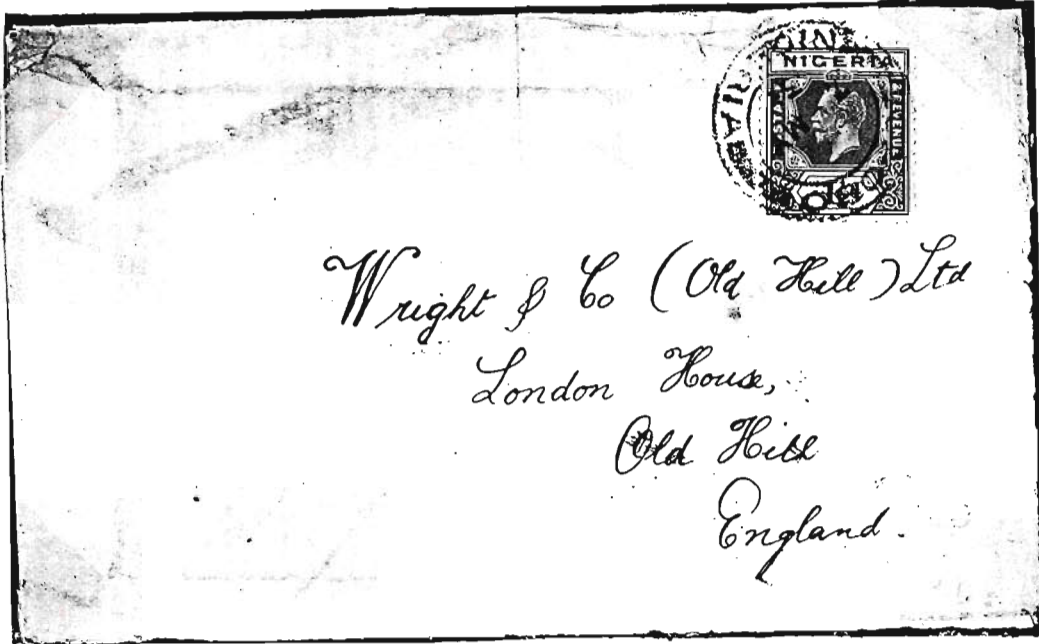 NIGERIA
POSTAGE
REVENUE
Wright & Co (Old Hill) Ltd
London House,
Old Hill
England.